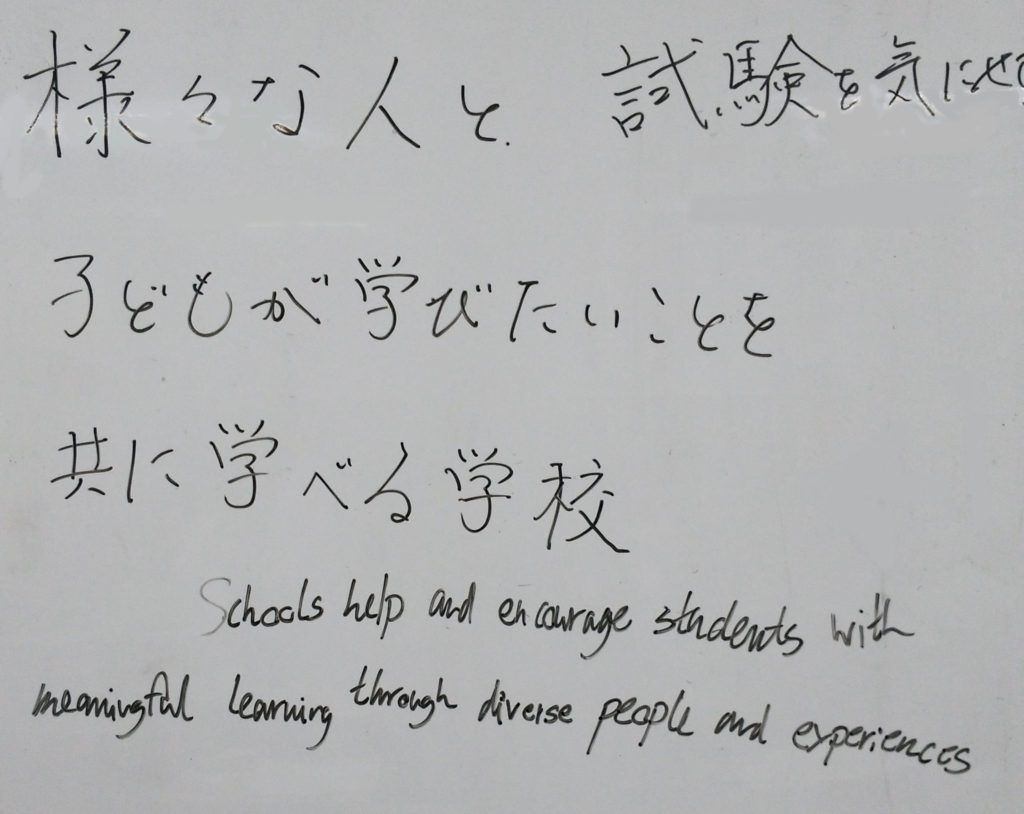 様々な人と 試験を気にせ
子どもが学びたいことを
共に学べる学校
Schools help and encourage students with
meaningful learning through diverse people and experiences